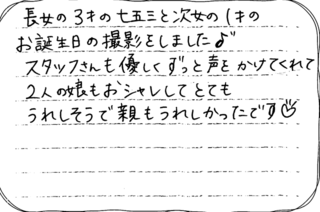 長女の3才の七五三と次女の1才の
お誕生日の撮影をしました♪
スタッフさんも優しくずっと声をかけてくれて
2人の娘もおシャレしてとても
うれしそうで親もうれしかったです☺